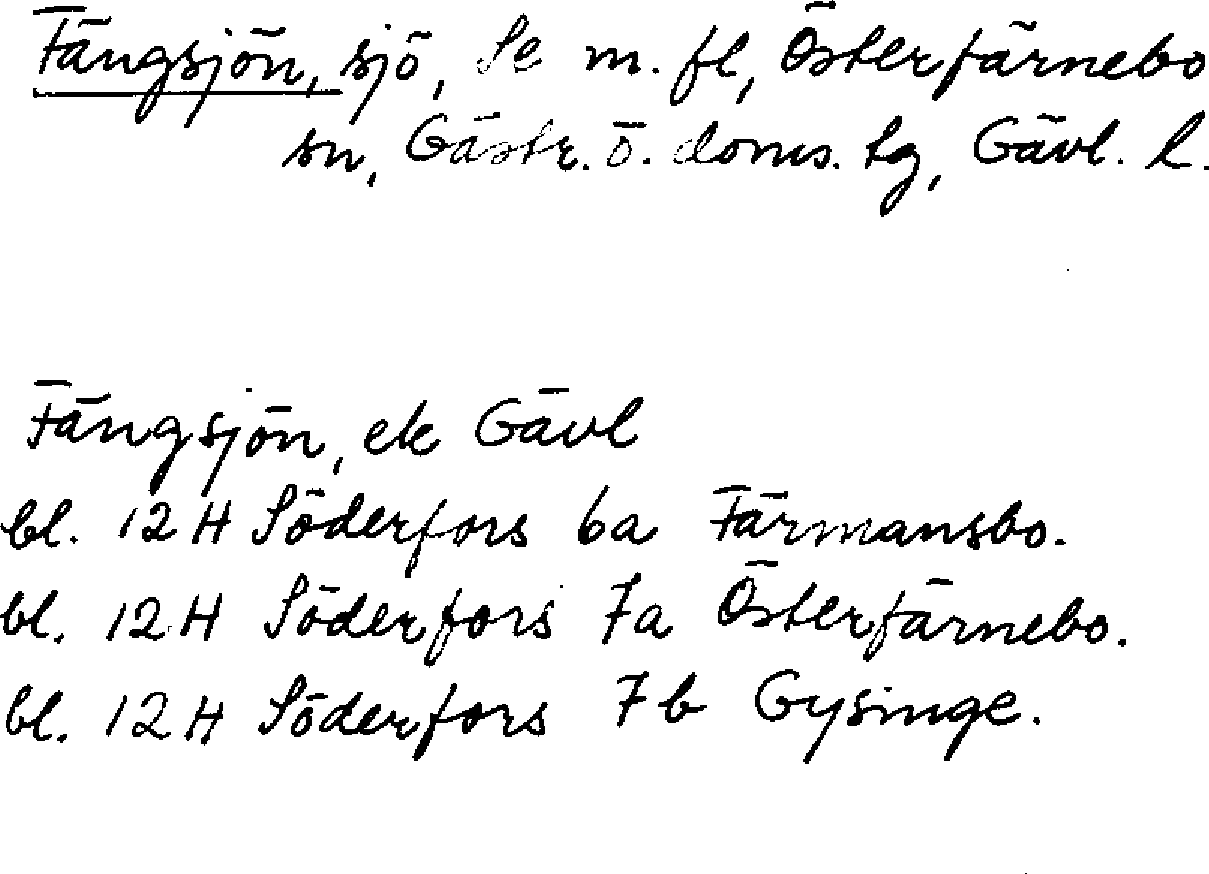 Fängsjön, sjö, Se m. fl, Österfärnebo
sn, Gästr. ö. doms. tg, Gävl. l.
Fängsjön, ek Gävl
bl. 12 H Söderfors 6a Färmansbo.
bl. 12 H Söderfors 7a Österfärnebo.
bl. 12 H Söderfors 7 b Gysinge.